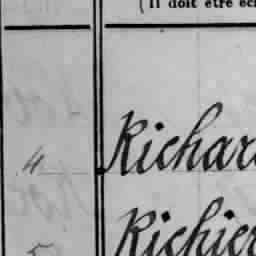 (Il doit être éc
4 Richar
5 Richier